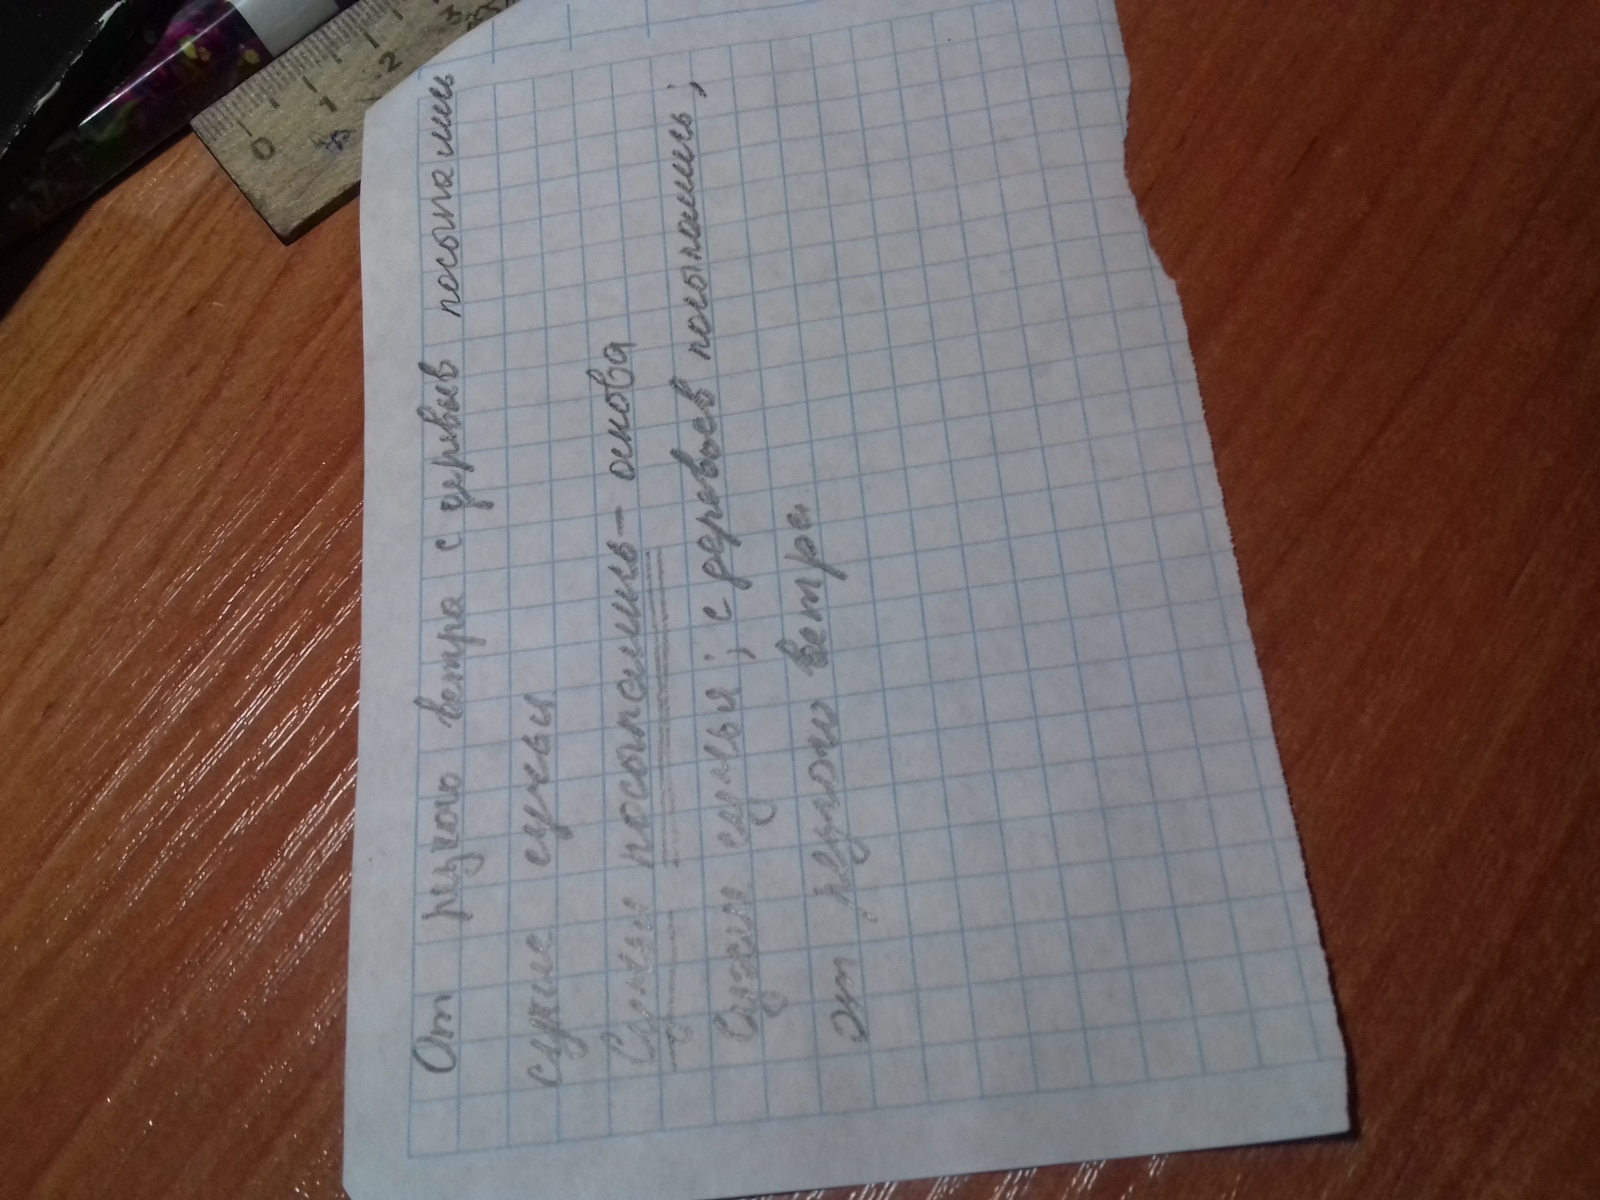 От резкого ветра с деревьев посыпались
сухие сучья
Сучья посыпались - основа
Сухие сучья; с деревьев посыпались;
от резкого ветра.
0 1 2 3